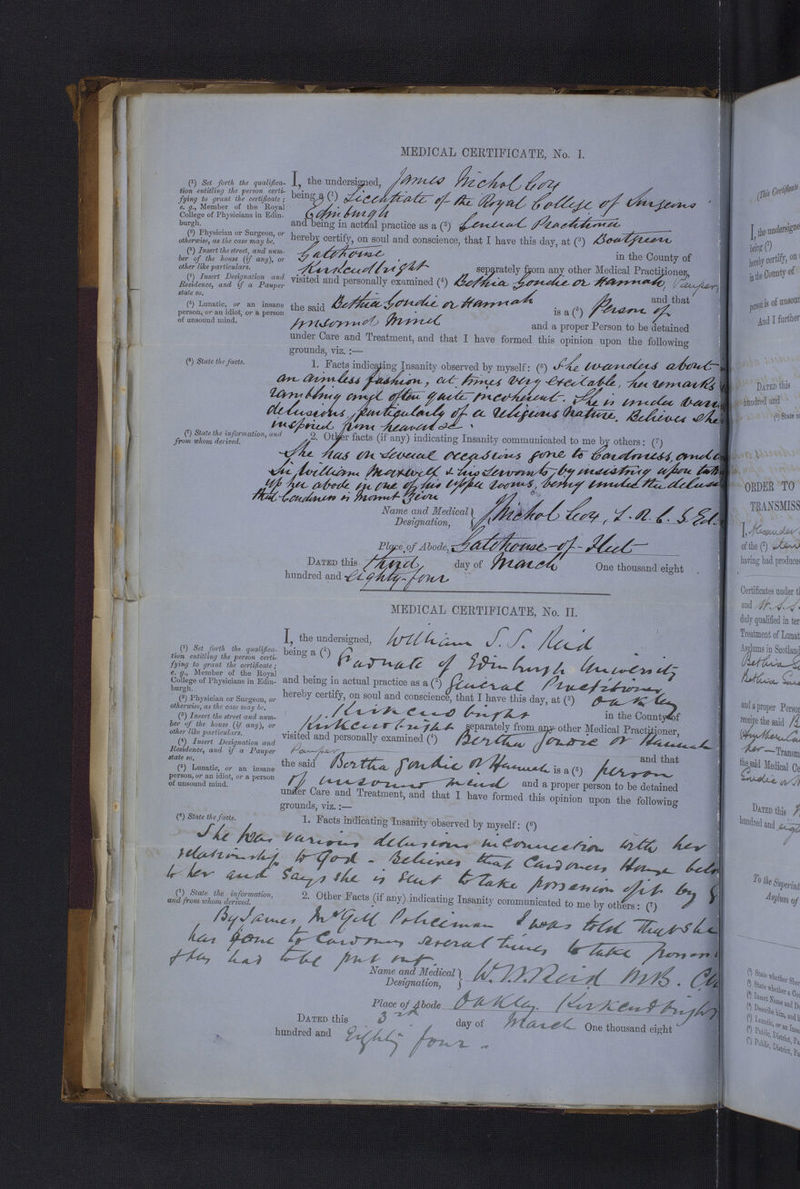 MEDICAL CERTIFICATE, No. I.
(¹) Set forth the qualifica-
tion entitling the person certi-
fying to grant the certificate;
e. g., Member of the Royal
College of Physicians in Edin-
burgh.
(²) Physician or Surgeon, or
otherwise, as the case may be.
(³) Insert the street, and num-
ber of the house (if any), or
other like particulars.
(⁴) Insert Designation and
Residence, and if a Pauper
state so.
(⁵) Lunatic, or an insane
person, or an idiot, or a person
of unsound mind.
I, the undersigned, James Nichol
being a (¹) Licentiate of the Royal College of Surgeons
Edinburgh
and being in actual practice as a (²) General Practitioner
hereby certify, on soul and conscience, that I have this day, at (³) Boatgreen
Gatehouse in the County of
Kirkcudbright separately from any other Medical Practitioner,
visited and personally examined (⁴) Bethia Gondie or Hannah, Pauper
and that
the said Bethia Gondie or Hannah is a (⁵) Person of
unsound mind and a proper Person to be detained
under Care and Treatment, and that I have formed this opinion upon the following
grounds, viz. :—
(⁶) State the facts.
1. Facts indicating Insanity observed by myself: (⁶) She wanders about
an aimless fashion, at times very excitable, her remarks
rambling and often quite incoherent. She is under
delusions, particularly of a religious nature. Believes she
inspired from heaven &c.
(⁷) State the information, and
from whom derived.
2. Other facts (if any) indicating Insanity communicated to me by others: (⁷)
She has on several occasions gone to Cardoness, and
Sir William Maxwell & his servants by insisting upon
up her abode in one of his upper rooms, being under the
that Cardoness is Mount Zion
Name and Medical Designation, Nichol L. R. C. S. Ed.
Place of Abode, Gatehouse-of-Fleet
DATED this Third day of March One thousand eight
hundred and Eighty-four
MEDICAL CERTIFICATE, No. II.
(¹) Set forth the qualifica-
tion entitling the person certi-
fying to grant the certificate;
e. g., Member of the Royal
College of Physicians in Edin-
burgh.
(²) Physician or Surgeon, or
otherwise, as the case may be.
(³) Insert the street and num-
ber of the house (if any), or
other like particulars.
(⁴) Insert Designation and
Residence, and if a Pauper
state so.
(⁵) Lunatic, or an insane
person, or an idiot, or a person
of unsound mind.
I, the undersigned, William S. S. Reid
being a (¹) Graduate of Edinburgh University
and being in actual practice as a (²) General Practitioner
hereby certify, on soul and conscience, that I have this day, at (³) Oakley
Kirkcudbright in the County of
Kirkcudbright separately from any other Medical Practitioner,
visited and personally examined (⁴) Bertha Gondie or Hannah
Pauper and that
the said Bertha Gondie or Hannah is a (⁵) person
of unsound mind and a proper person to be detained
under Care and Treatment, and that I have formed this opinion upon the following
grounds, viz. :—
(⁶) State the facts.
1. Facts indicating Insanity observed by myself: (⁶)
She has various delusions in connection with her
relationship to God - Believes that Cardoness House
to her and says she is sent to take possession of it by
(⁷) State the information,
and from whom derived.
2. Other Facts (if any) indicating Insanity communicated to me by others: (⁷)
By James McGill Policeman I was told that she
has gone to Cardoness several times to take
& has had to be put out.
Name and Medical Designation, Reid MB.
Place of Abode Oakley. Kirkcudbright
DATED this 3rd day of March One thousand eight
hundred and Eighty four
(This Certificate
I, the undersigned
being (¹)
hereby certify, on
in the County of
person is of unsound
And I further
DATED this
hundred and
(¹) State
ORDER TO
TRANSMISS
I,
of the (¹)
having had produced
Certificates under
and
duly qualified in
Treatment of
Asylums in Scotland
Bethia
and a proper Person
receive the said
her — Transm
the said Medical
DATED this
hundred and
To the Superint
Asylum of